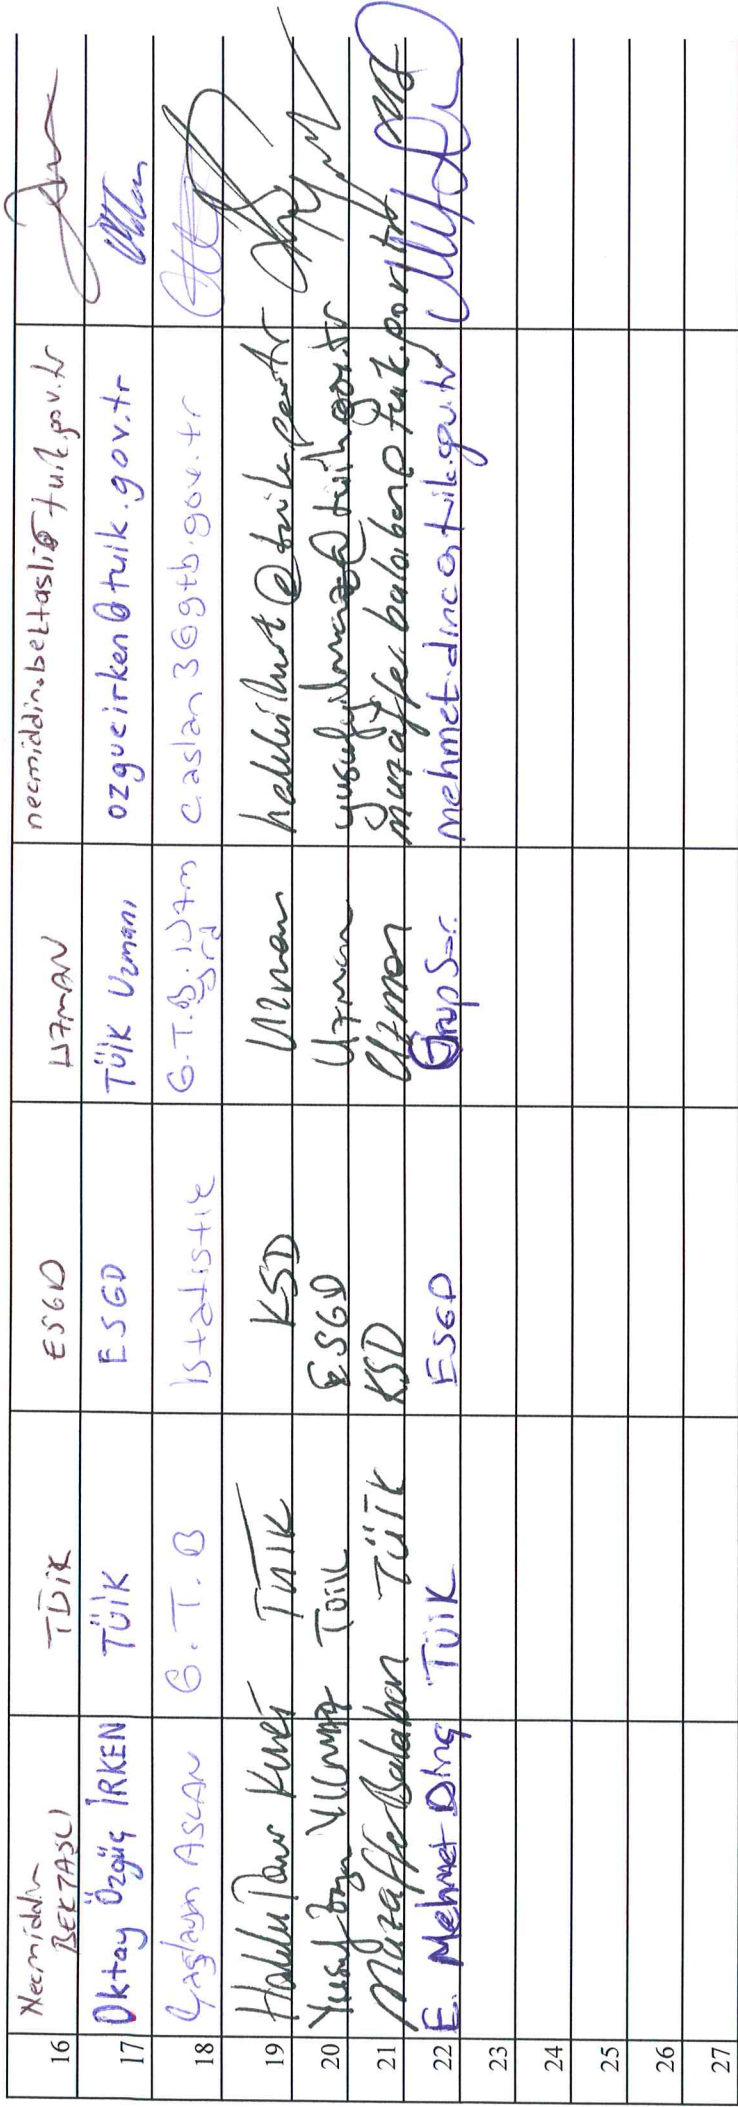 16 Necmiddin BEKTAŞLI TÜİK ESGD UZMAN necmiddin.bektasli@tuik.gov.tr
17 Oktay Özgüç İRKEN TÜİK ESGD TÜİK Uzmanı ozgucirken@tuik.gov.tr
18 Çağlayan ASLAN G.T.B İstatistik G.T.B. Uzm Yrd c.aslan3@gtb.gov.tr
19 KURT TÜİK KSD Uzman
20 Yusuf YILMAZ TÜİK ESGD Uzman
21 Muzaffer Balaban TÜİK KSD Uzman muzaffer.balaban@tuik.gov.tr
22 E. Mehmet Dinç TÜİK ESGD Grup Sor. mehmet.dinc@tuik.gov.tr
23
24
25
26
27